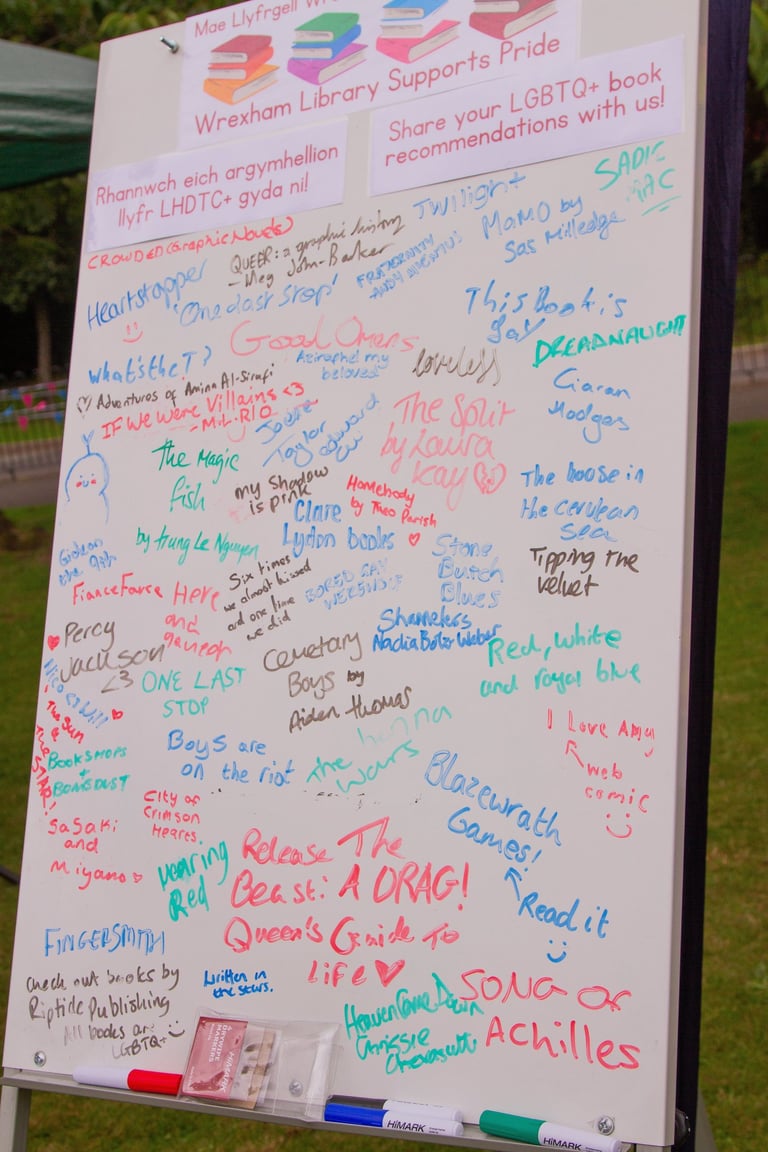 Mae Llyfrgell
Wrexham Library Supports Pride
Rhannwch eich argymhellion
llyfr LHDTC+ gyda ni!
Share your LGBTQ+ book
recommendations with us!
SADIE
CROWDED (Graphic Novels)
QUEER: a graphic history
- Meg John-Barker
Twilight
MaMO by
Sas Milledge
Heartstopper
'One last Stop'
FRATERNITY
- ANDY MIENTUS
This Book is
gay
Good Omens
Aziraphel my
beloved
loveless
DREADNAUGHT
what's the T?
Adventures of Amina Al-Sirafi
IF We Were Villains <3
- M.L. RIO
Ciaran
Hodgers
Joelle
Taylor
The Split
by Laura
Kay
The Magic
fish
by trung Le Nguyen
my Shadow
is pink
Homebody
by Theo Parish
The house in
the cerulean
Sea
Clare
Lydon books
Gideon
the 9th
Stone
Butch
Blues
Tipping The
velvet
Fiance Farce
Here
and
Queer
Six times
we almost kissed
and one time
we did
BORED GAY
WEREWOLF
Percy
Jackson
<3
Shameless
Nadia Bolz Weber
Cemetary
Boys by
Aiden Thomas
Red, white
and royal blue
Nico & Will
ONE LAST
STOP
The Sun
&
THE STAR!
I Love Amy
web
comic
BOOKSHOPS
+
BONEDUST
Boys are
on the riot
the
wars
Blazewrath
Games!
Read it
City of
Crimson
Hearts
Sasaki
and
Miyano
wearing
Red
Release The
Beast: A DRAG!
Queen's Guide To
life
FINGERSMITH
Check out books by
Riptide Publishing
All books are
LGBTQ+
written in
the stars.
Heaven Come Down
Chrissie
SONG OF
Achilles
DRYWIPE
MARKERS
HiMARK
HiMARK
HiMARK